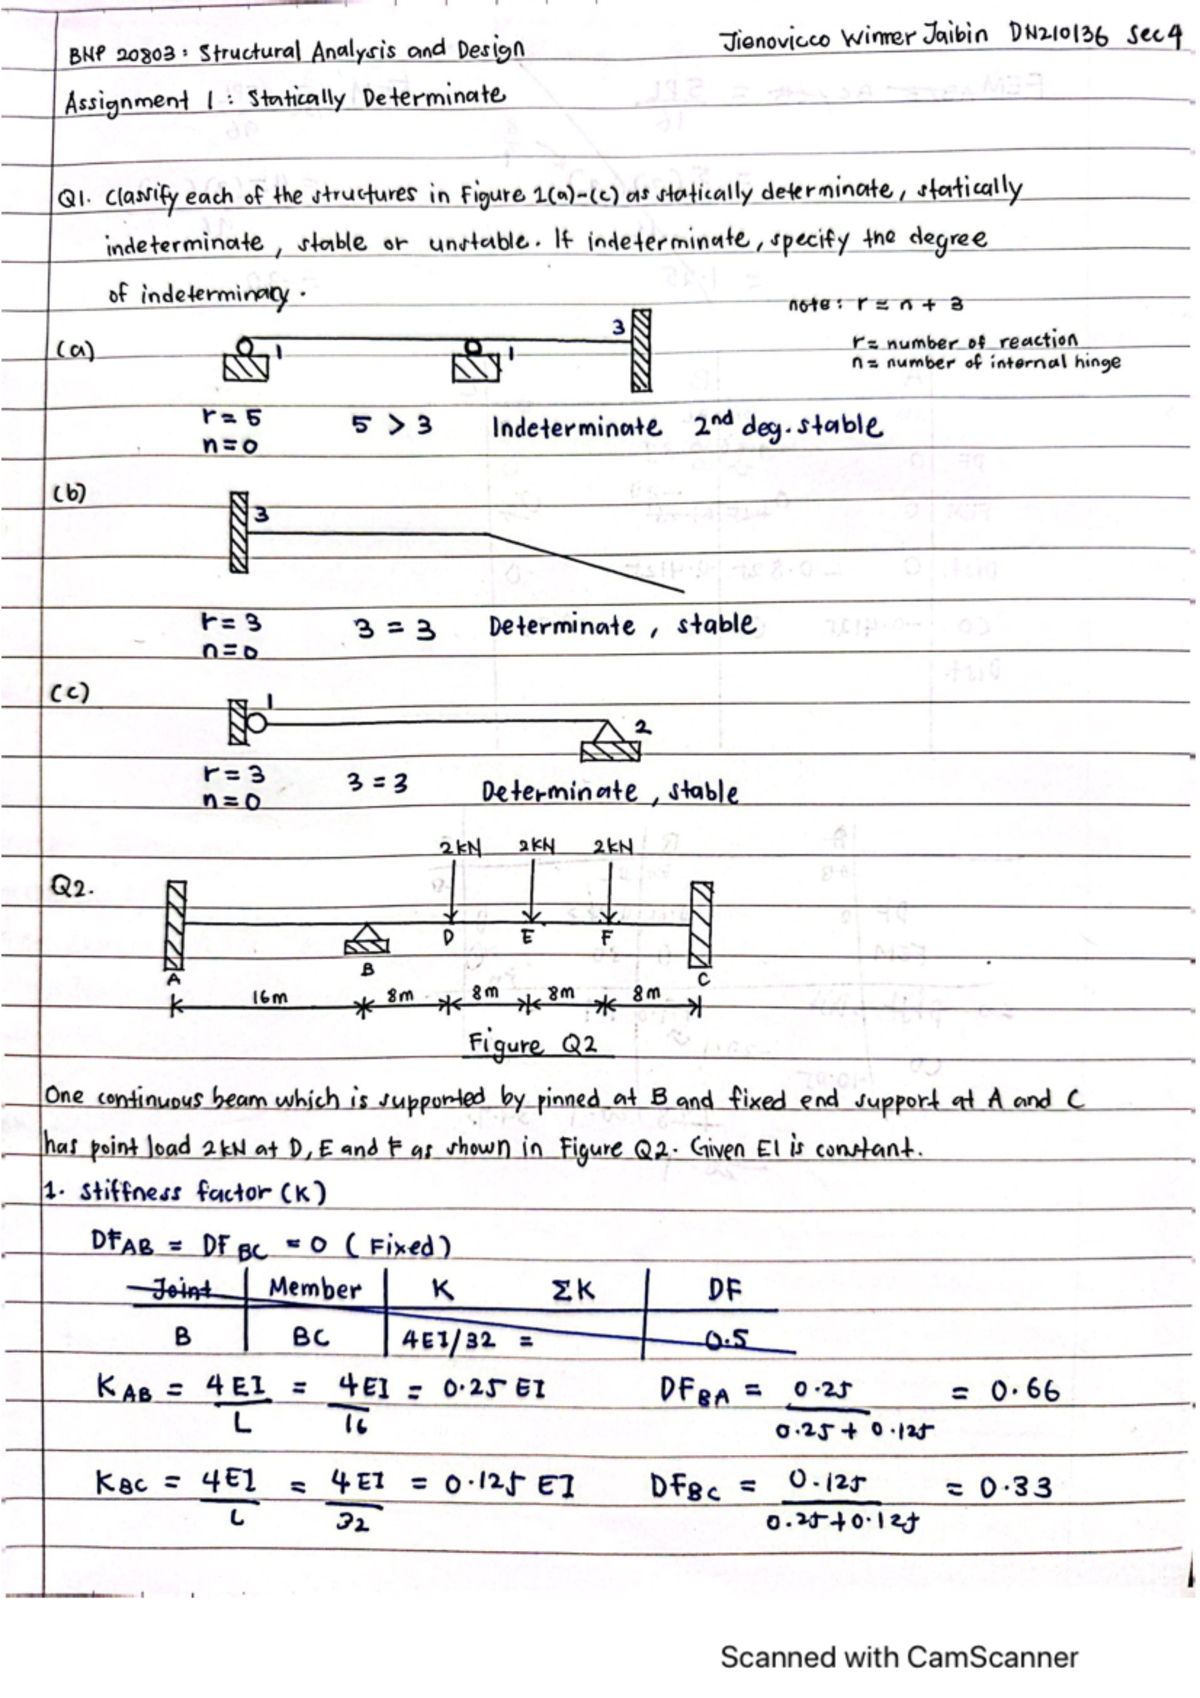 BNP 20803: Structural Analysis and Design
Jienovicco Winner Jaibin DN210136 Sec 4
Assignment 1: Statically Determinate
Q1. Classify each of the structures in Figure 1(a)-(c) as statically determinate, statically
indeterminate, stable or unstable. If indeterminate, specify the degree
of indeterminacy.
note: r = n + 3
r= number of reaction
n= number of internal hinge
(a)
1
1
3
r = 5
n = 0
5 > 3
Indeterminate 2nd deg. stable
(b)
3
r = 3
n = 0
3 = 3
Determinate, stable
(c)
1
2
r = 3
n = 0
3 = 3
Determinate, stable
Q2.
2kN 2kN 2kN
A B D E F C
16m 8m 8m 8m 8m
Figure Q2
One continuous beam which is supported by pinned at B and fixed end support at A and C
has point load 2kN at D, E and F as shown in Figure Q2. Given EI is constant.
1. Stiffness factor (K)
DFAB = DFBC = 0 (Fixed)
Joint Member K ΣK DF
B BC 4EI/32 = 0.5
KAB = 4EI/L = 4EI/16 = 0.25 EI
DFBA = 0.25/0.25+0.125 = 0.66
KBC = 4EI/L = 4EI/32 = 0.125 EI
DFBC = 0.125/0.25+0.125 = 0.33
Scanned with CamScanner